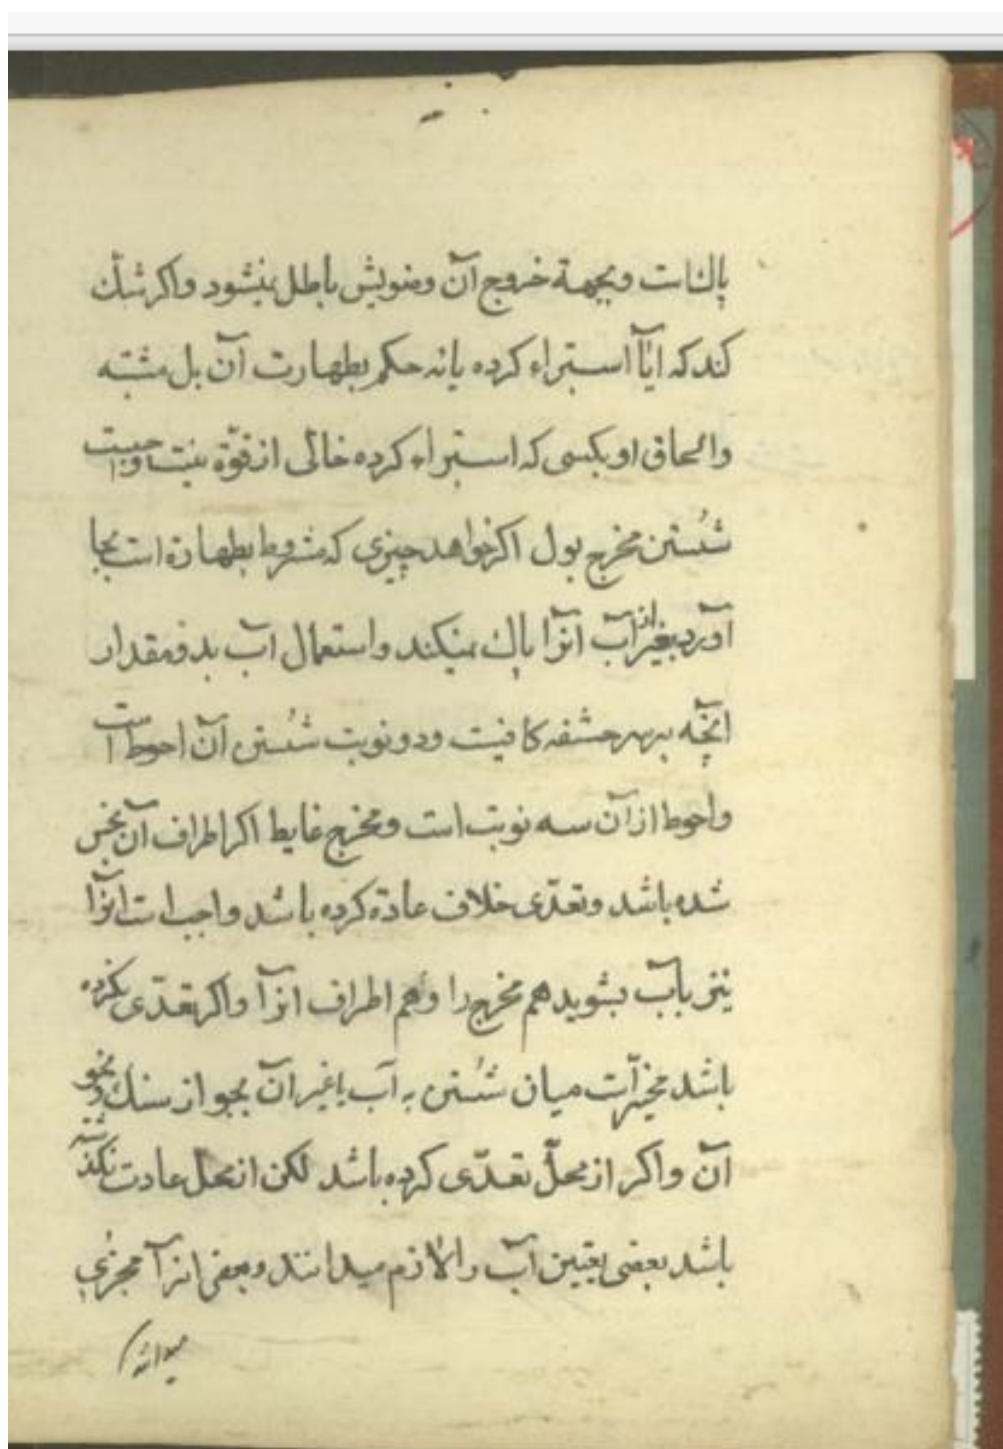 پاك است وبجهة خروج آن وضویش باطل نمیشود واكر شك
كند كه ایا استبراء كرده یا نه حكم بطهارت آن بلل مشتبه
والحاق او بكسی كه استبراء كرده خالی از قوّة نیست وواجبست
شُستن مخرج بول اكر خواهد چیزی كه مشروط بطهارة است بجا
آورد بغیر از آب آنرا پاك نمیكند واستعمال آب بدو مقدار
آنچه بر سر حشفه كافیست ودو نوبت شُستن آن احوط است
واحوط از آن سه نوبت است ومخرج غایط اكر اطراف آن نجس
شده باشد وتعدّی خلاف عادة كرده باشد واجب است آنرا
نیز بآب بشوید هم مخرج را وهم اطراف آنرا واكر تعدّی نكرده
باشد مخیّر است میان شُستن به آب یا غیر آن بجو از سنك ونحو
آن واكر از محلّ تعدّی كرده باشد لكن از محلّ عادت نكذشته
باشد بعضی تعیین آب را لازم میدانند وبعضی آنرا مجزی
میدانند